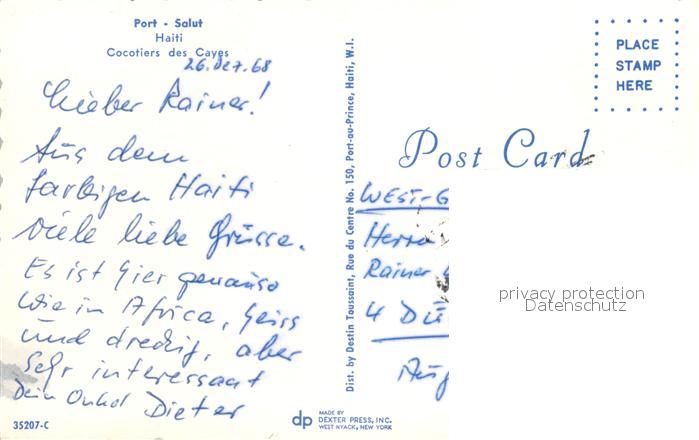 Port - Salut
Haiti
Cocotiers des Cayes
26. Dez. 68
Lieber Rainer!
Aus dem
farbigen Haiti
viele liebe Grüsse.
Es ist hier genauso
wie in Africa, heiss
und dreckig, aber
sehr interessant
Dein Onkel Dieter
35207-C
dp MADE BY
DEXTER PRESS, INC.
WEST NYACK, NEW YORK
Dist. by Destin Toussaint, Rue du Centre No. 150, Port-au-Prince, Haiti, W.I.
PLACE
STAMP
HERE
Post Card
WEST-G
Herrn
Rainer
4 DÜ
privacy protection
Datenschutz